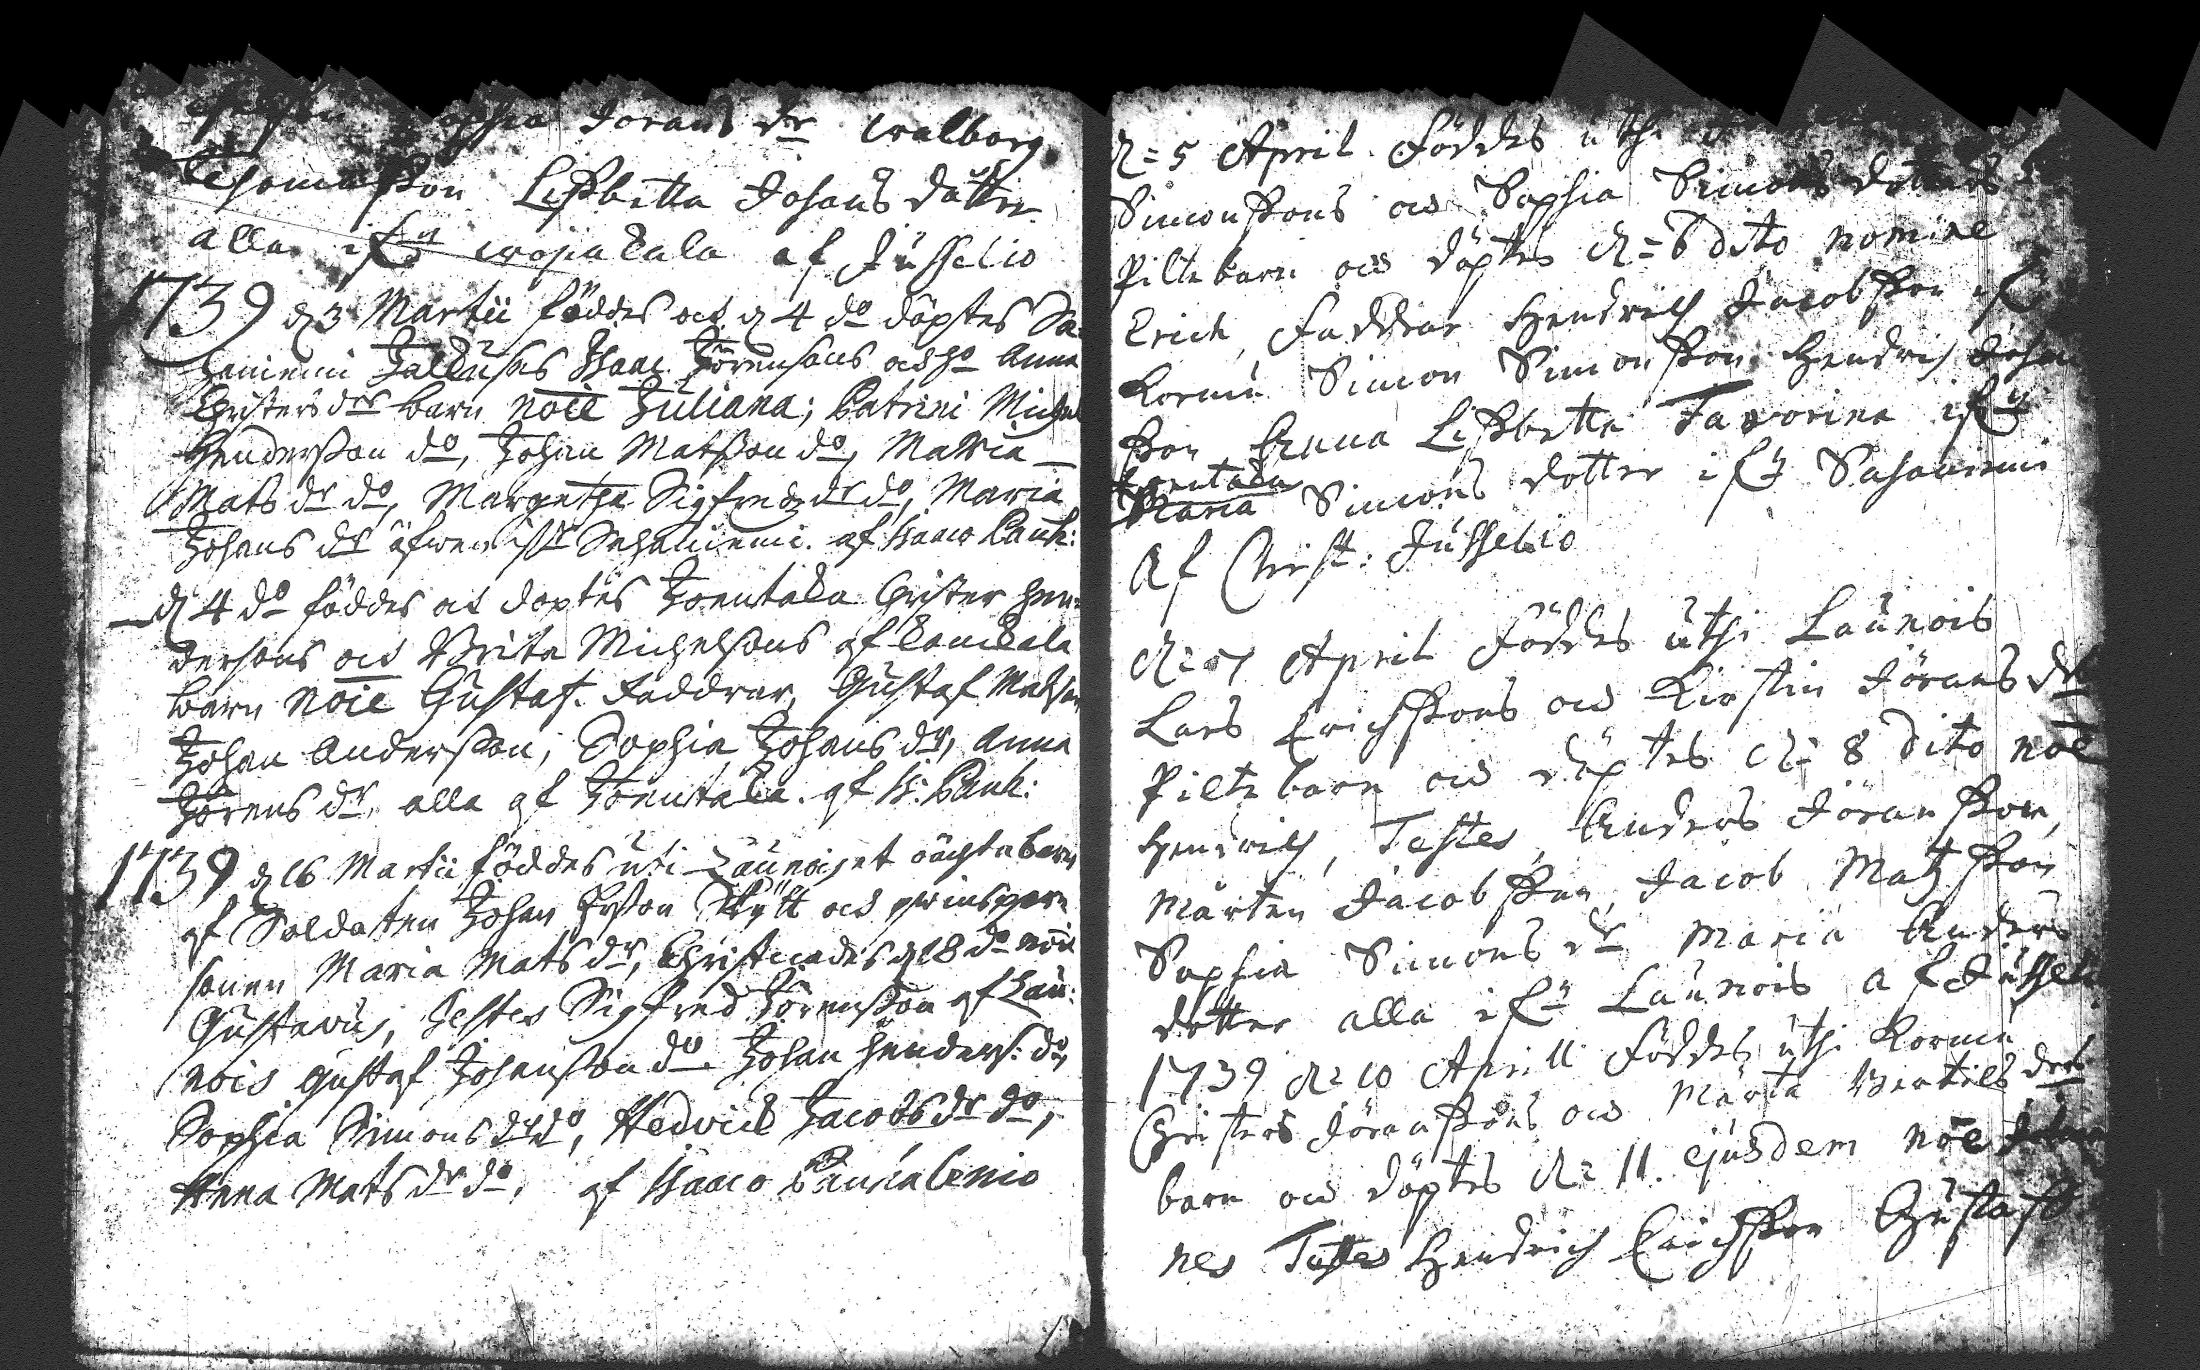 Sophia Jorans dr Walborg
Thomasson Lissbetta Johans dotter
alla ifr wojakala af Jusselio
1739 d 3 Martii föddes och d 4 do döptes Sa-
haniemi Isaac Jörensons och ho Anna
Christers drs barn noie Juliana; Catrini Michel
Hendersson do, Johan Matsson do, Maria
Mats dr do, Margetha Sigfredz dr do, Maria
Johans dr äfwen ifr Sahaniemi. af Isaco Pauk:
d 4 do föddes och döptes Joentaka Christer Hen-
dersons och Brita Michelsons af
barn noie Gustaf. Faddrar, Gustaf Matsson
Johan Andersson, Sophia Johans dr, Anna
Jörens dr, alla af Joentaka. af Is: Pauk:
1739 d 16 Martii föddes uti Launois et oächta barn
af Soldaten Johan Ersson Skytt och qwinsper-
sonen Maria Mats dr, Christnades d 18 do noie
Gustavus, Testes Sigfred Jörensson af Lau-
nois Gustaf Johansson do Johan Henders: do,
Sophia Simons dr do, Hedvick Jacobs dr do,
Anna Mats dr do, af Isaco Paucalenio
d = 5 April Föddes uthi
Simonssons och Sophia Simons dotters
Piltebarn och döptes d = 6 dito nomine
Erich, Faddrar Hendrich Jacobsson ifr
Kormu Simon Simonsson Hendrich Johan
sson Anna Lissbetta Tavorina ifr
Joentaka
Maria Simons dotter ifr Sahaniemi
Af Christ: Jusselio
d = 7 April Föddes uthi Launois
Lars Erichssons och Kirstin Jörans dr
Piltebarn och döptes d = 8 dito noe
Hendrich, Testes, Anders Jöransson,
Mårten Jacobsson, Jacob Matzsson
Sophia Simons dr Maria Anders
dotter alla ifr Launois af Jusseli
1739 d = 10 Aprill Föddes uthi Kormu
Christers Jöranssons och Märta Bertils drs
barn och döptes d = 11. ejusdem noe Johan
nes Testes Hendrich Erichsson Gustafs